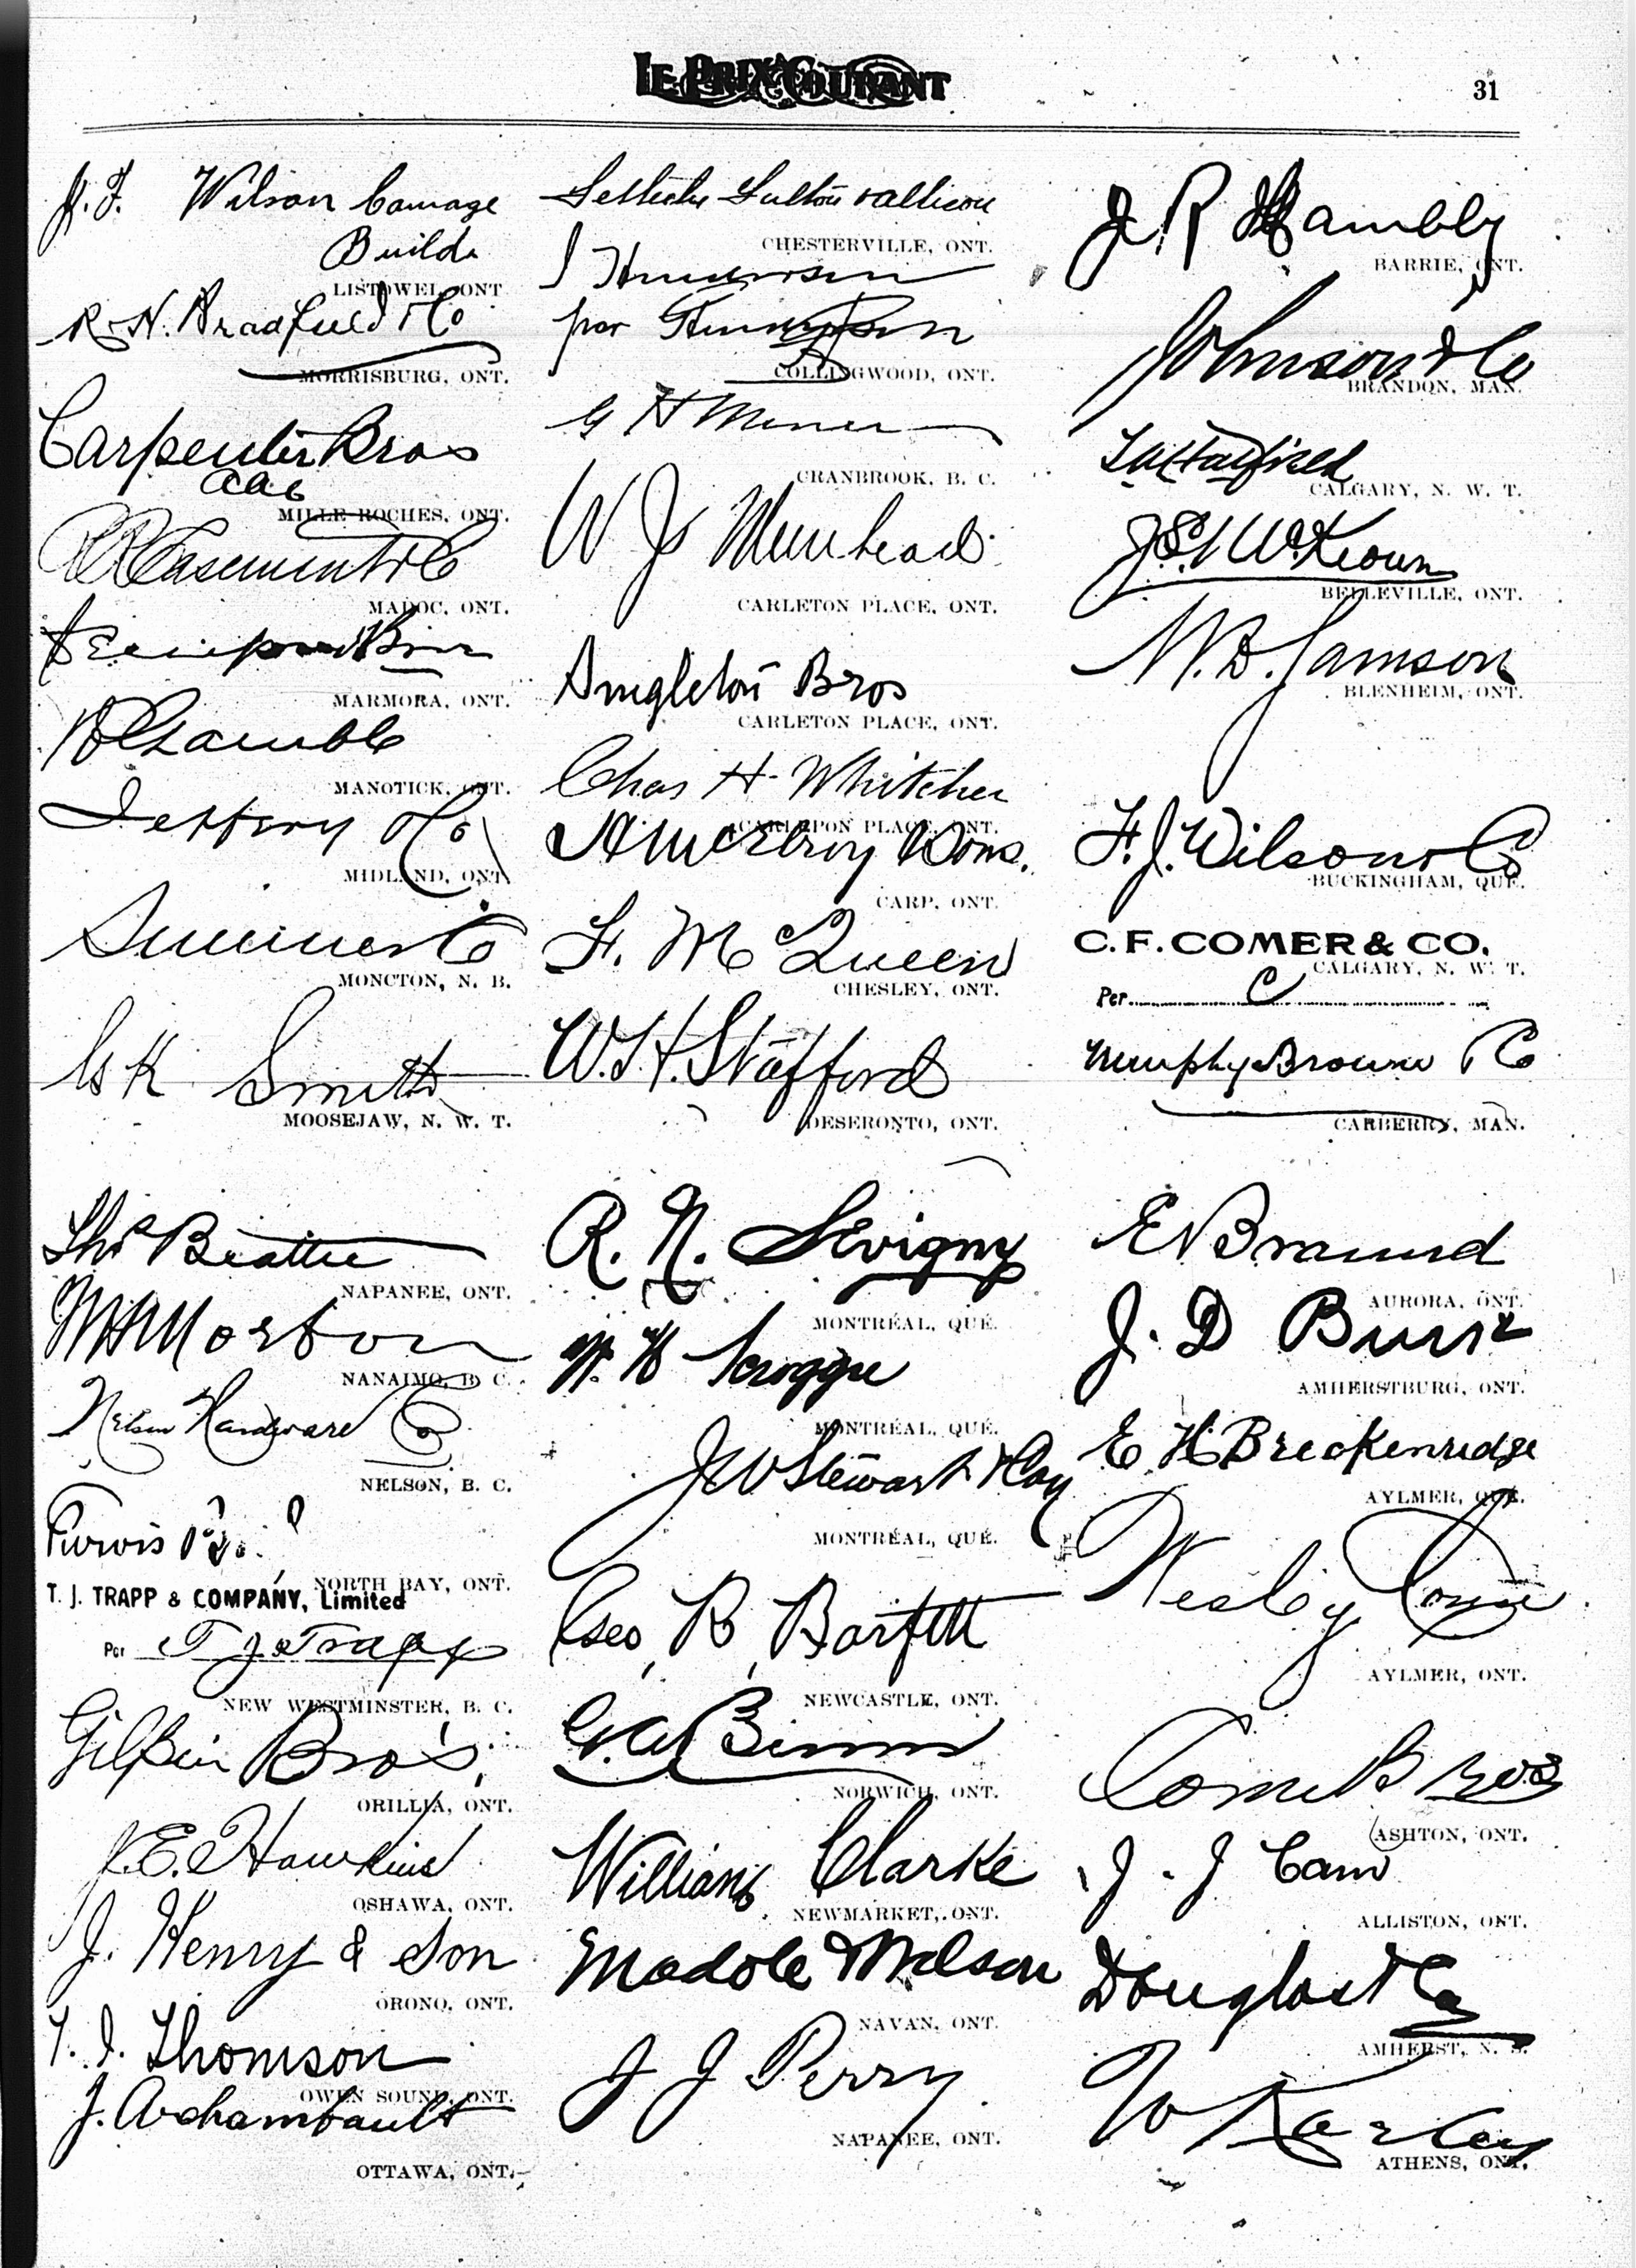 LE PRIX COURANT
31
J. F. Wilson Carriage
Builder
LISTOWEL, ONT
R. H. Bradfield & Co
MORRISBURG, ONT.
Carpenter Bros
MILLE ROCHES, ONT.
Casement & Co
MADOC, ONT.
Bros
MARMORA, ONT.
Gamble
MANOTICK, ONT.
Jeffery & Co
MIDLAND, ONT.
Sumner & Co
MONCTON, N. B.
K Smith
MOOSEJAW, N. W. T.
Thos Beattie
NAPANEE, ONT.
Morton
NANAIMO, B. C.
Nelson Hardware Co
NELSON, B. C.
Purvis
NORTH BAY, ONT.
T. J. TRAPP & COMPANY, Limited
Per T J Trapp
NEW WESTMINSTER, B. C.
Gilpin Bro's.
ORILLIA, ONT.
J. E. Hawkins
OSHAWA, ONT.
J. Henry & Son
ORONO, ONT.
Thomson
OWEN SOUND, ONT.
J. Archambault
OTTAWA, ONT.
Fulton
CHESTERVILLE, ONT.
per
COLLINGWOOD, ONT.
G H Miner
CRANBROOK, B. C.
W J Muirhead
CARLETON PLACE, ONT.
Singleton Bros
CARLETON PLACE, ONT.
Chas H Whitcher
CARLETON PLACE, ONT.
McElroy & Sons.
CARP, ONT.
F. McQueen
CHESLEY, ONT.
W. H. Stafford
DESERONTO, ONT.
R. N. Sévigny
MONTRÉAL, QUÉ.
W. H. Scroggie
MONTRÉAL, QUÉ.
J W Stewart & Coy
MONTRÉAL, QUÉ.
Geo. B. Bartlett
NEWCASTLE, ONT.
Binns
NORWICH, ONT.
William Clarke
NEWMARKET, ONT.
Madole & Wilson
NAVAN, ONT.
J J Perry
NAPANEE, ONT.
J R Hambly
BARRIE, ONT.
Johnson & Co
BRANDON, MAN.
CALGARY, N. W. T.
McKeown
BELLEVILLE, ONT.
W. D. Samson
BLENHEIM, ONT.
F. J. Wilson & Co
BUCKINGHAM, QUÉ.
C. F. COMER & CO.
CALGARY, N. W. T.
Per C
Murphy Brown & Co
CARBERRY, MAN.
E N Braund
AURORA, ONT.
J. D Burk
AMHERSTBURG, ONT.
E H Breckenridge
AYLMER, QUÉ.
Wesley
AYLMER, ONT.
Bros
ASHTON, ONT.
J. J Cain
ALLISTON, ONT.
Douglas & Co
AMHERST, N. S.
W Karley
ATHENS, ONT.